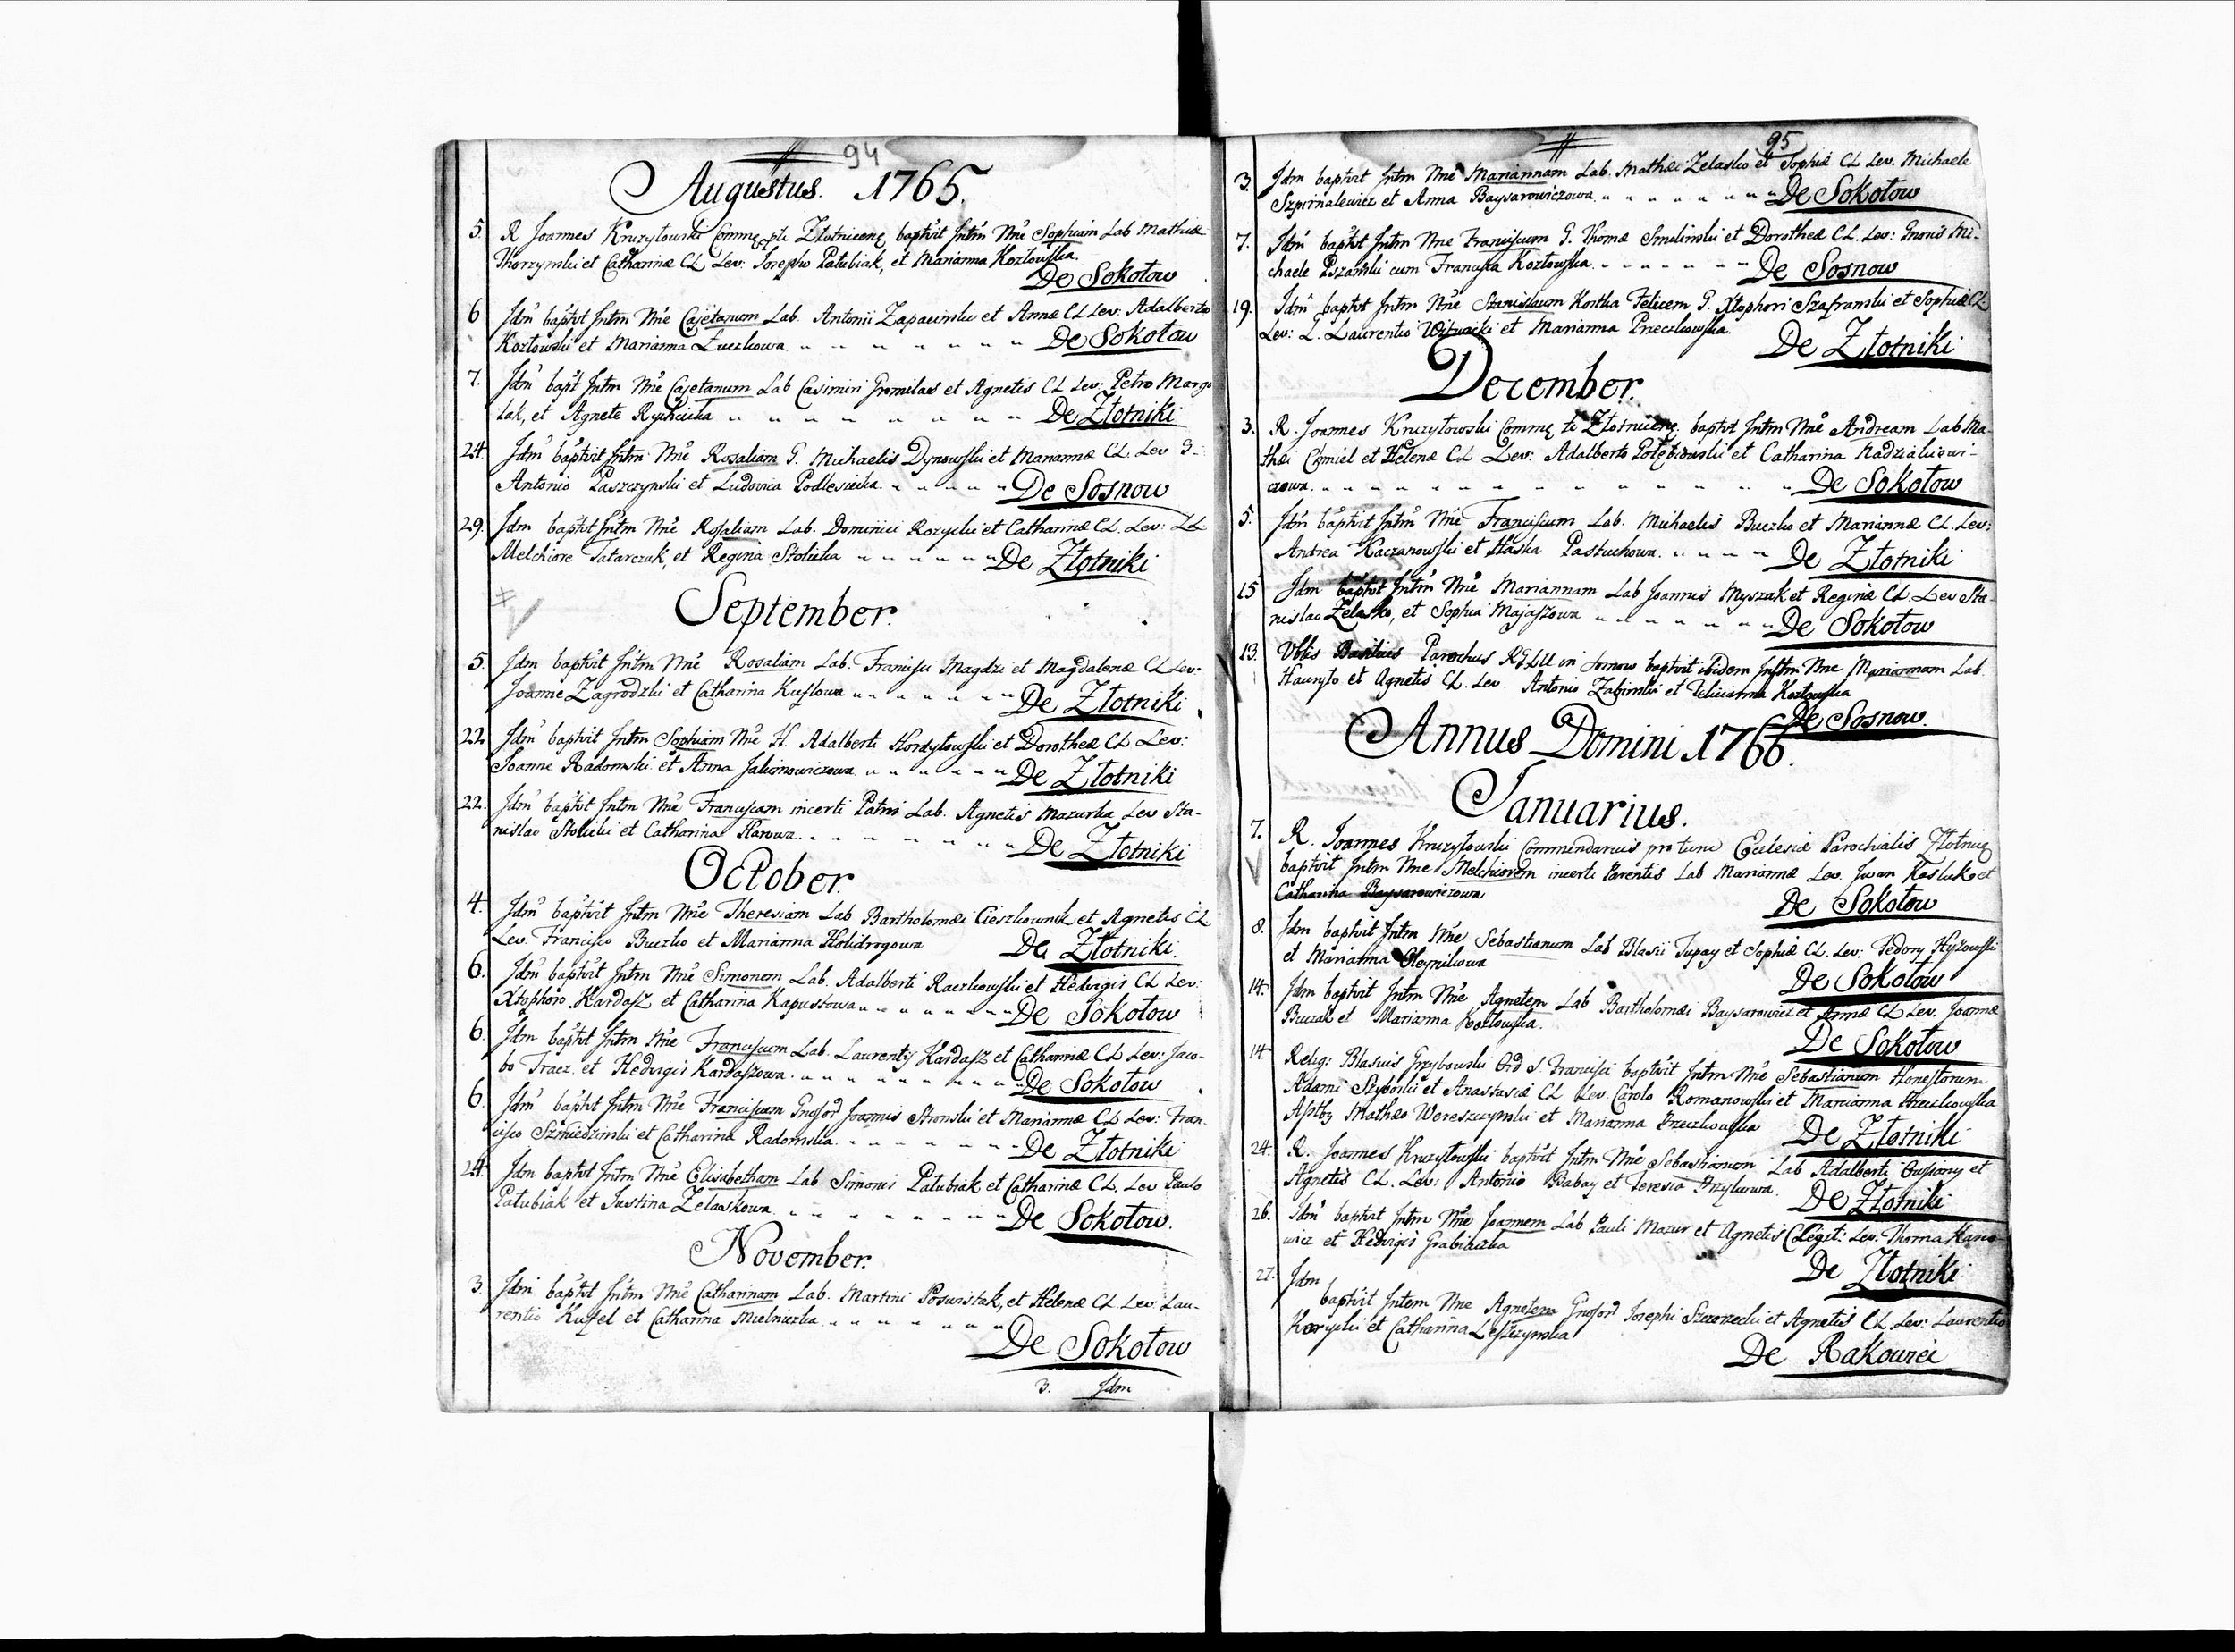 94
Augustus. 1765.
5. R Joannes Kruzytowski Comm ptē Złotnicenę baptvit Jntm Nne Sophiam Lab Mathiæ
Thorzymski et Catharinæ CL Lev: Josepho Patubiak, et Marianna Kozłowska.
De Sokołow
6 Jdm baptvt Jntm Nne Cajetanum Lab. Antonii et Annæ CL Lev: Adalberto
Kozłowski et Marianna Łuczkowa De Sokołow
7. Jdm bapt Jntm Nne Cajetanum Lab Casimiri Gromilas et Agnetis CL Lev: Petro Margo
lak, et Agnete Rychcicka De Złotniki
24. Jdm baptvit Jntm Nne Rosaliam G. Michaelis Dynowski et Mariannæ CL. Lev G.
Antonio Paszczynski et Ludovica Podlesiecka De Sosnow
29. Jdm baptvt Jntm Nne Rosaliam Lab. Dominici Rozycki et Catharinæ CL. Lev: LL
Melchiore Tatarczuk, et Regina Stolicka De Złotniki
September.
5. Jdm baptvit Jntm Nne Rosaliam Lab. Francisci Magdzi et Magdalenæ CL Lev:
Joanne Zagrodzki et Catharina Kuszlowa De Złotniki
22 Jdm baptvit Jntm Sophiam Nne H. Adalberti Hordytowski et Dorotheæ CL Lev:
Joanne Radomski et Anna Jakimowiczowa De Złotniki
22. Jdm baptvit Jntm Nne Franciscam incerti Patris Lab. Agnetis Mazurka Lev Sta-
nislao Stolicki et Catharina Harowa. De Złotniki
October.
4. Jdm baptvit Jntm Nne Theresiam Lab Bartholomæi Cieszkownik et Agnetis CL
Lev. Francisco Buczko et Marianna Holidrogowa De Złotniki.
6. Jdm baptvit Jntm Nne Simonem Lab. Adalberti Raczkowski et Hedvigis CL Lev:
Xtophoro Kardasz et Catharina Kapuszowa De Sokołow
6. Jdm baptvt Jntm Nne Franciscum Lab. Laurentij Kardasz et Catharinæ CL Lev: Jaco-
bo Tracz et Hedvigis Kardaszowa. De Sokołow
6. Jdm baptvt Jntm Nne Franciscum Gnosord Joannis Stronski et Mariannæ CL Lev: Fran-
cisco Szmiedzinski et Catharina Radomska. De Złotniki
24. Jdm baptvt Jntm Nne Elisabetham Lab Simonis Patubiak et Catharinæ CL. Lev Paulo
Patubiak et Justina Zelaskowa De Sokołow.
November.
3. Jdm baptvt Jntm Nne Catharinam Lab. Martini Poswistak, et Helenæ CL Lev: Lau-
rentio Kuszel et Catharina Mielniczka
De Sokołow
3. Jdm
95
3. Jdm baptvit Jntm Nne Mariannam Lab. Mathæi Zelasko et Sophiæ CL Lev. Michaele
Szpirnalewicz et Anna Baysarowiczowa De Sokołow
7. Jdm baptvt Jntm Nne Franciscum G. Thomæ Smolinski et Dorotheæ CL. Lev: Gnosis Mi-
chaele Pszanski cum Francisca Kozłowska. De Sosnow
19. Jdm baptvt Jntm Nne Stanislaum Kostka Felicem G. Xtophori Szafranski et Sophiæ CL
Lev: L. Laurentio Witwicki et Marianna Przeczkowska. De Złotniki
December.
3. R. Joannes Kruzytowski Commę te Złotnicenę baptvt Jntm Nne Andream Lab Ma-
thæi Chmiel et Helenæ CL Lev: Adalberto Potębiowski et Catharina Radzialuiowi-
czowa. De Sokołow
5. Jdm baptvit Jntm Nne Franciscum Lab. Michaelis Buczko et Mariannæ CL. Lev:
Andrea Kaczanowski et Haska Pastuchowa. De Złotniki
15 Jdm baptvt Jntm Nne Mariannam Lab Joannis Myszak et Reginæ CL. Lev Sta-
nislao Zelasko, et Sophia Majaszowa De Sokołow
13. Vblis Basilius Parochus in Sosnow baptvit ibidem Jnftm Nne Mariannam Lab
Hawryło et Agnetis CL. Lev. Antonio Zabinski et Feliciana Kozłowska
De Sosnow.
Annus Domini 1766.
Januarius.
7. R. Joannes Kruzytowski Commendarius pro tunc Ecclesiæ Parochialis Złotnicę
baptvit Jntm Nne Melchiorem incerti Parentis Lab Mariannæ Lev. Jwan Kasluk et
Catharina Baysarowiczowa De Sokołow
8. Jdm baptvit Jntm Nne Sebastianum Lab Blasii Tupay et Sophiæ CL. Lev: Fedory Hyżowski
et Marianna Oleynikowa De Sokołow
14. Jdm baptvit Jntm Nne Agnetem Lab Bartholomæi Baysarowicz et Annæ CL Lev. Joanne
Buczak et Marianna Kozłowska. De Sokołow
14 Relig: Blasius Grzybowski Ord S. Francisci baptvit Jntm Nne Sebastianum Honestorum
Adami Szyborski et Anastasiæ CL Lev. Carolo Romanowski et Marianna Przeczkowska
Astbz Mathæo Wereszczynski et Marianna Przeczkowska De Złotniki
24. R. Joannes Kruzytowski baptvit Jntm Nne Sebastianum Lab Adalberti Owsiany et
Agnetis CL. Lev: Antonio Babay et Teresia Przykowa. De Złotniki
26. Jdm baptvit Jntm Nne Joannem Lab Pauli Mazur et Agnetis C Legit: Lev: Thoma Karo-
wicz et Hedvigis Grabiaczka
De Złotniki
27. Jdm
baptvit Jntem Nne Agnetem Gnosord Josephi Szczerzecki et Agnetis CL. Lev: Laurentio
Korycki et Catharina Leszczynska
De Rakowiec